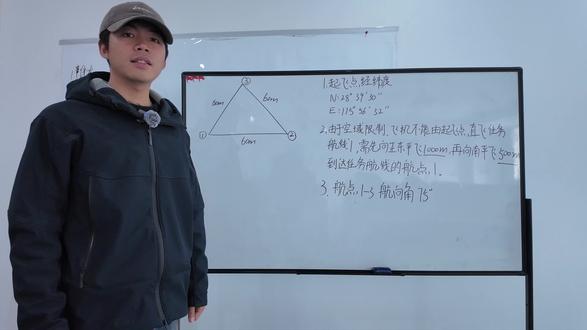 ③
6cm
6cm
①
②
6cm
1.起飞点,经纬度
N:28°39′30″
E:115°56′32″
2.由于空域限制,飞机不能由起飞点,直飞任务
航线1,需先向正东平飞1000m,再向南平飞500m
到达任务航线的航点,1。
3.航点,1-3航向角75°